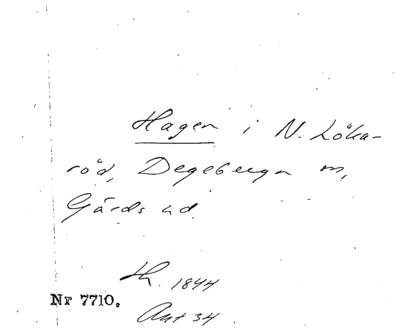 Hagen i N. Löka-
röd, Degeberga sn,
Gärds hd.
Th. 1844
Nr 7710.
Avt 34